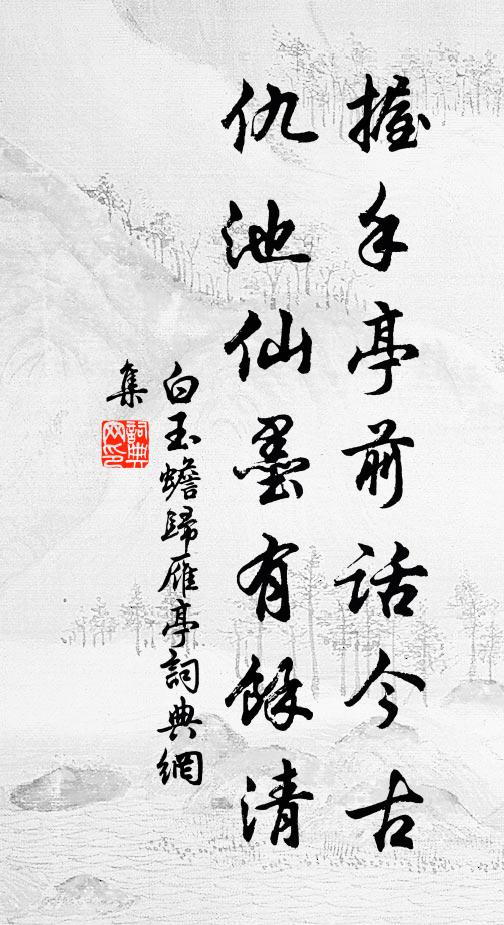 握手亭前話今古
仇池仙墨有餘清
白玉蟾歸雁亭詞典網
集
詞典
网印